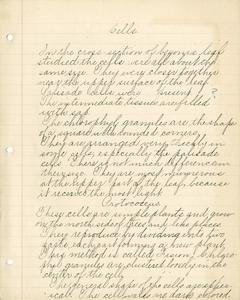 Cells
In the cross section of Bryony's leaf
studied the cells were all about the
same size. They were closer together
near the upper surface of the leaf.
Palisade cells were present?
The intermediate tissues are filled
with sap.
The chlorophyl granules are the shape
of a square with rounded corners.
They are arranged very thickly in
some cells, especially the palisade
cells. There is not much difference in
their size. They are most numerous
at the upper part of the leaf, because
it receives the most light.
Protococcus
These cells are simple plants and grow
on the north side of trees and like places.
They reproduce by dividing into four
parts, each part forming a new plant.
This method is called fission. Chloro
and granules are clustered loosely in the
center of the cell.
The general shape of the cells are spher-
ical. The cell walls are dark colored